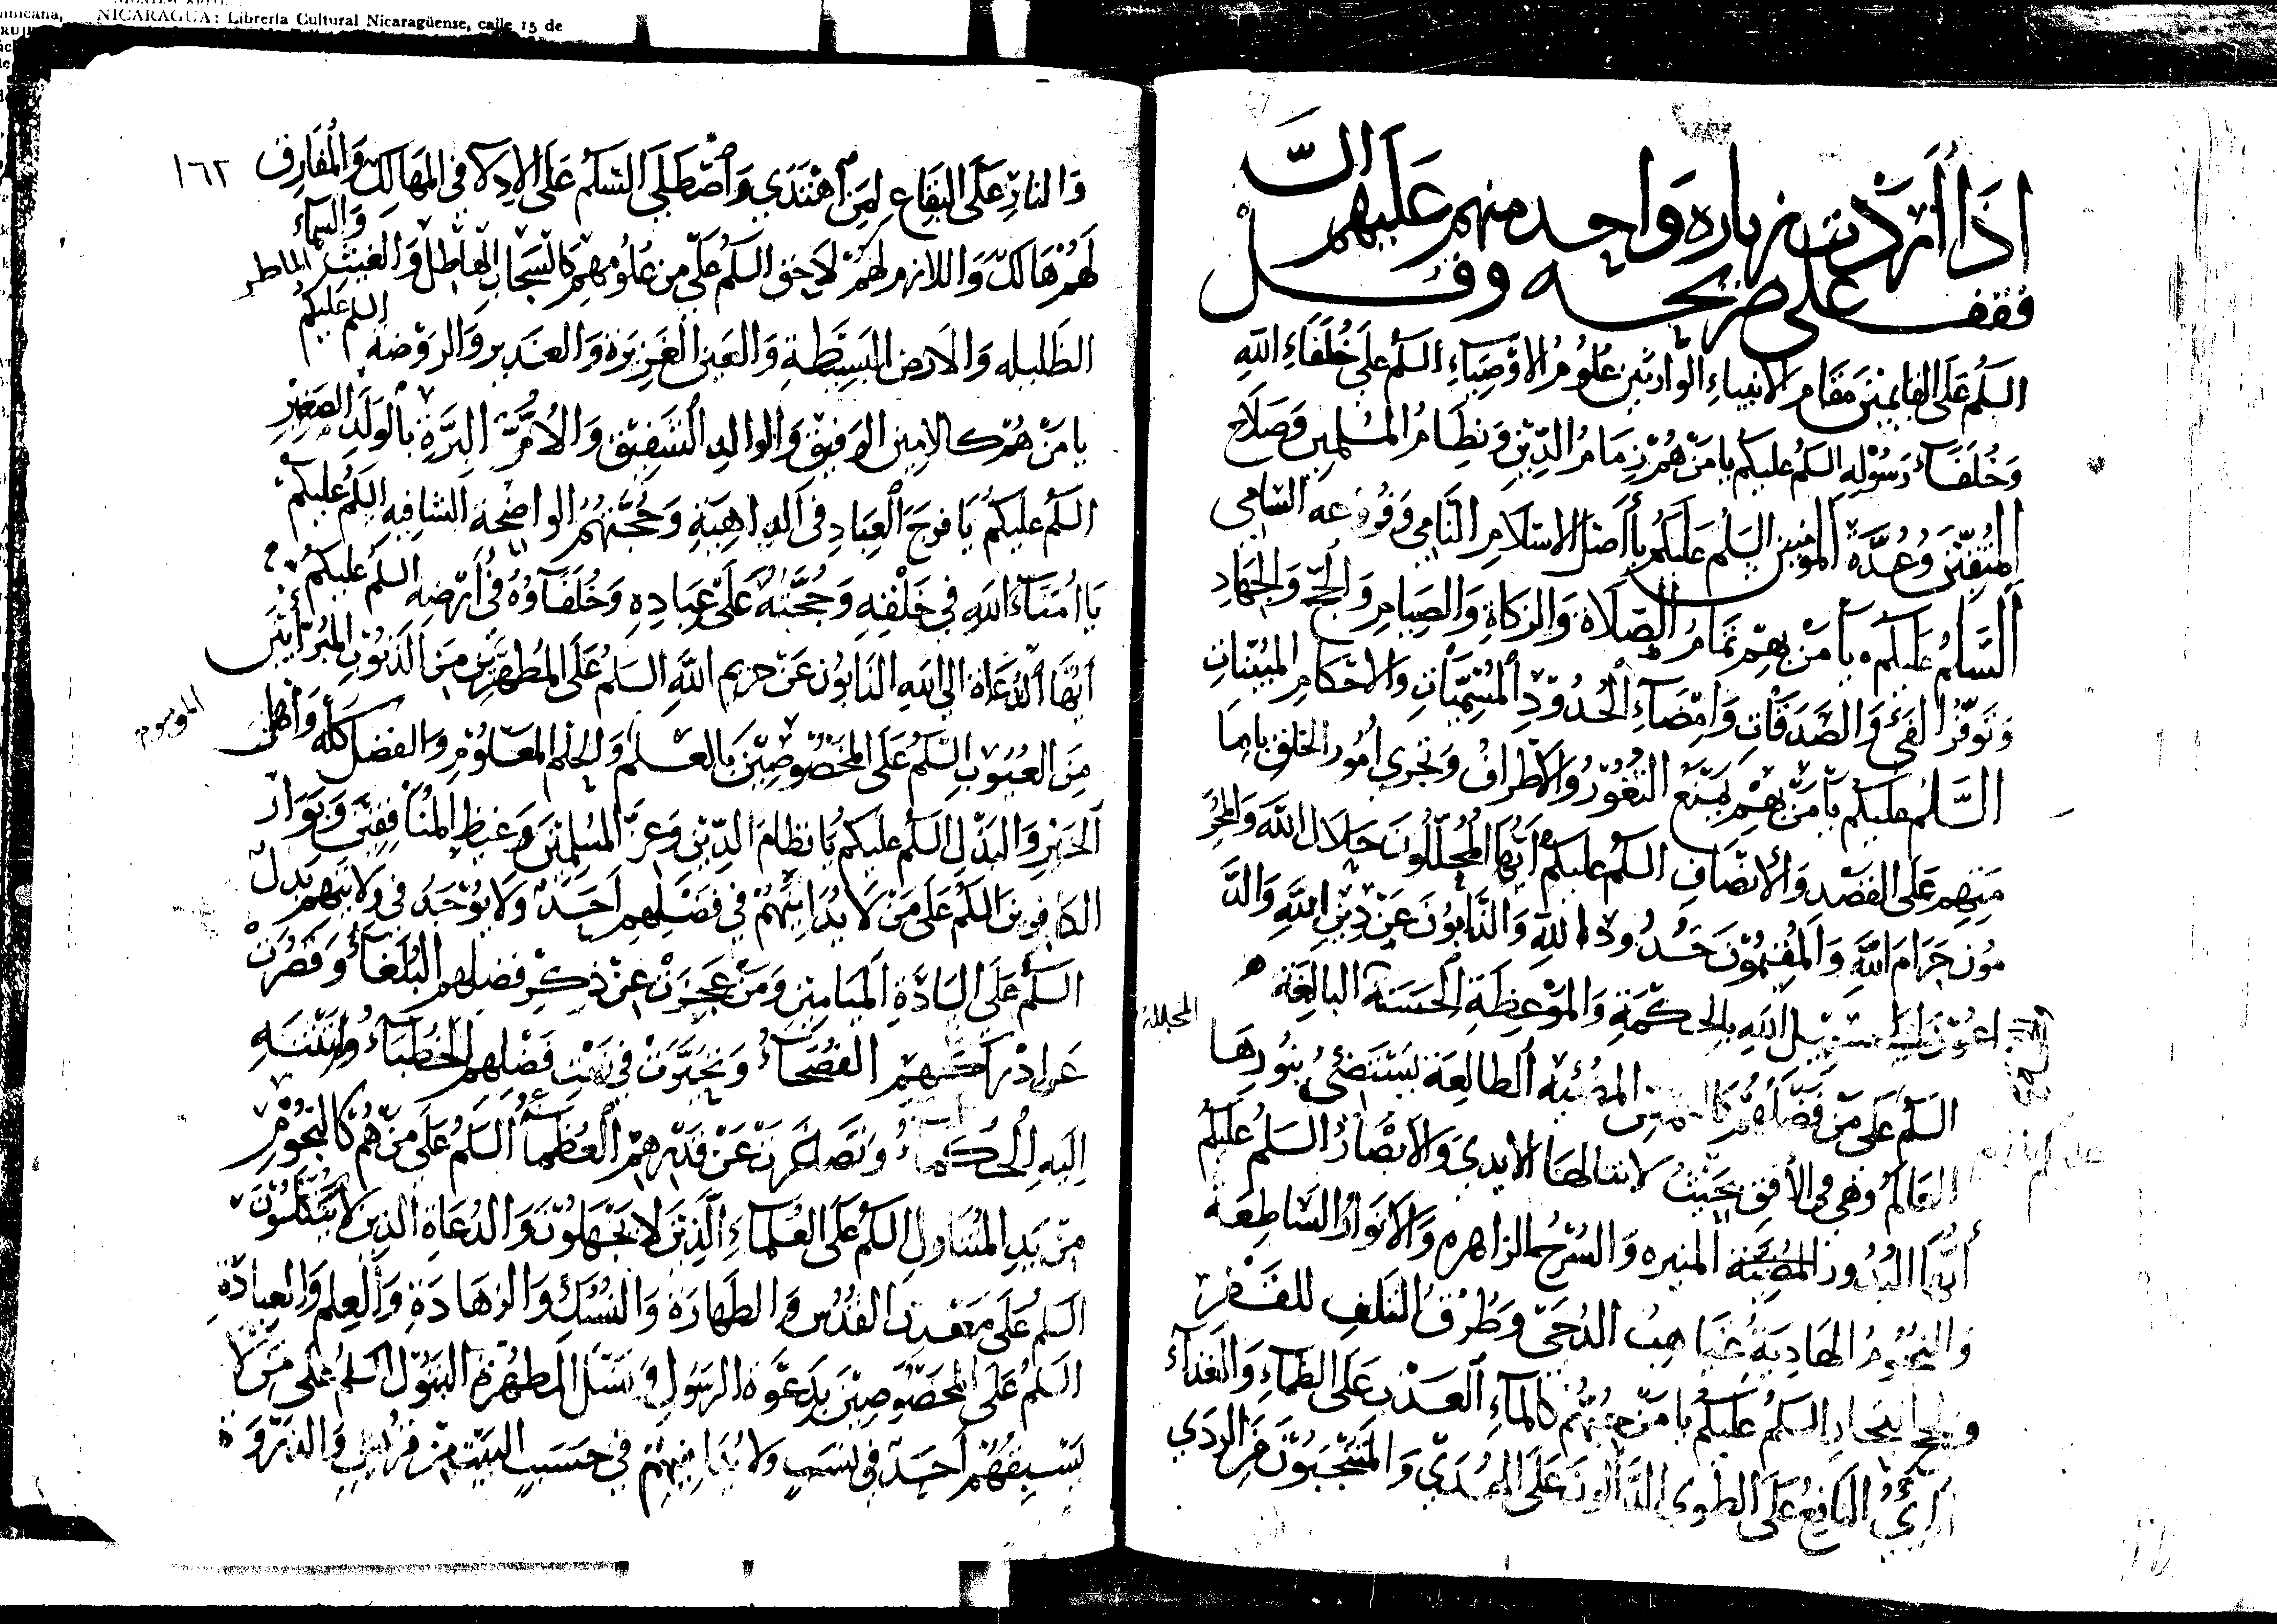 اذا أردت زيارة واحد منهم عليهم السّ
فقف على ضريحه وقل
السلم على القائمين مقام الانبياء الوارثين علوم الاوصياء السلم على خلفاء الله
وخلفاء رسوله السلم عليكم يا من هم زمام الدين ونظام المسلمين وصلاح
المتقين وعدة المؤمنين السلم عليكم يا أصل الاسلام النامي وفروعه السامي
السلم عليكم يا من بهم تمام الصلاة والزكاة والصيام والحج والجهاد
وتوفر الفيء والصدقات وامضاء الحدود المسميات والاحكام المبينات
السلم عليكم يا من بهم يمنع الثغور والاطراف وتجري امور الخلق بامـا
منهم على القصد والانصاف السلم عليكم أيها المحللون حلال الله والمحر
مون حرام الله والمقيمون حدود الله والذابون عن دين الله والد
اعون الى سبيل الله بالحكمة والموعظة الحسنة البالغة
السلم على من فضلهم المضيئة الطالعة يستضيء بنورها
المجللة
العالم وهي في الأفق بحيث لا تنالها الايدي والابصار السلم عليكم
أيها البدور المنيره والسرج الزاهره والانوار الساطعة
والنجوم الهادية غياهب الدجى وطرق التلف للقفر
ولجج البحار السلم عليكم يا من حبهم كالماء العذب على الظماء والغذاء
النافع على الطوى الدالون على الهدى والمنتجبون من الردي
١٦٢
والنار على اليفاع لمن أهتدي وأصطلي السلم على الادلا في المهالك والمفارق
لهم هالك واللازم لهم لاحق السلم على من علومهم كالسحاب الهاطل والغيث الماطر والسماء
الظليله والارض البسيطة والعين الغزيرة والغدير والروضة السلم عليكم
يا من هم كالامين الرفيق والوالد الشفيق والام البرة بالولد الصغير
السلم عليكم يا فرج العباد في الداهية وحجتهم الواضحة الشافيه السلم عليكم
يا امناء الله في خلقه وحجته على عباده وخلفاؤه في أرضه السلم عليكم
أيها الدعاة الى الله الذابون عن حريم الله السلم على المطهرين من الذنوب المبرأين
من العيوب السلم على المخصوصين بالعلم والحلم المعلوم والفضل كله وأهل
الموسوم
الخير والبذل السلم عليكم يا نظام الدين وعز المسلمين وغيظ المنافقين وبوار
الكافرين السلم على من لا يدانيهم في فضلهم احد ولا يوجد في ولايتهم بدل
السلم على السادة الميامين ومن عجزت عن ذكر فضلهم البلغاء وقصرت
عن ادراكهم الفصحاء وتحيرت في نعت فضلهم الخطباء ولم تنته
اليه الحكماء وتصاغرت عن قدرهم العظماء السلم على من هم كالنجوم
من يد المتناول السلم على العلماء الذين لا يجهلون والدعاة الذين لا ينكلون
السلم على معدن القدس والطهارة والنسك والزهادة والعلم والعبادة
السلم على المخصوصين بدعوة الرسول ونسل المطهرة البتول السلم على من لا
يسبقهم أحد في نسب ولا يدانيهم في حسب البيت من قريش والذروة
NICARAGUA: Librería Cultural Nicaragüense, calle 15 de